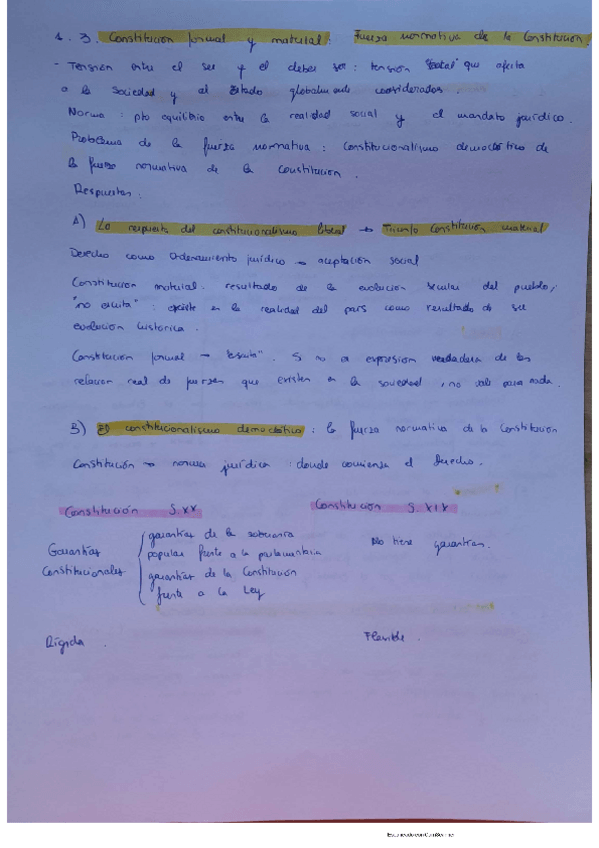 1.3. Constitución formal y material: Fuerza normativa de la Constitución.
- Tensión entre el ser y el deber ser: tensión "total" que afecta
a la sociedad y al Estado globalmente considerados.
Norma: pto equilibrio entre la realidad social y el mandato jurídico.
Problema de la fuerza normativa: Constitucionalismo democrático de
la fuerza normativa de la constitución.
Respuestas.
A) La respuesta del constitucionalismo liberal → Triunfo Constitución material
Derecho como Ordenamiento jurídico → aceptación social
Constitución material: resultado de la evolución secular del pueblo,
"no escrita": existe en la realidad del país como resultado de su
evolución histórica.
Constitución formal → "escrita". Si no es expresión verdadera de las
relación real de fuerzas que existen en la sociedad, no vale para nada.
B) El constitucionalismo democrático: la fuerza normativa de la Constitución
Constitución → norma jurídica: donde comienza el derecho.
Constitución S.XX
Constitución S.XIX
Garantías Constitucionales
garantías de la soberanía
popular frente a la parlamentaria
garantías de la Constitución
frente a la Ley
No tiene garantías.
Rígida.
Flexible.
Escaneado con CamScanner